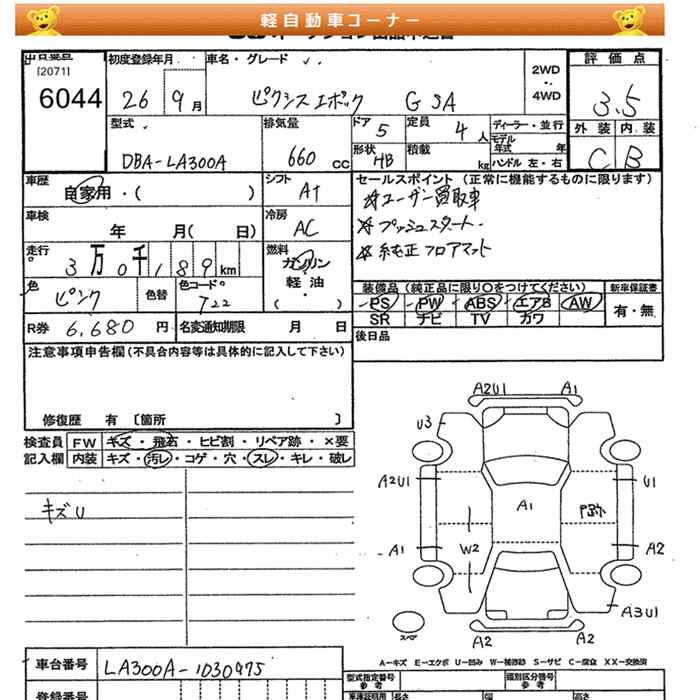 軽自動車コーナー
[2071]
6044
初度登録年月
26 9月
車名・グレード
ピクシスエポック G SA
2WD
4WD
評価点
3.5
外装 内装
C B
型式
DBA-LA300A
排気量
660 CC
ドア 5
定員 4人
形状 HB
積載 kg
ディーラー・並行
モデル年式 年
ハンドル 左・右
車歴
自家用・( )
シフト
AT
車検
年 月( 日)
冷房
AC
走行
3万0千189km
燃料
ガソリン・軽油・( )
色
ピンク
色替
色コード
T22
R券 6,680円
名変通知期限 月 日
セールスポイント (正常に機能するものに限ります)
☆ユーザー買取車
☆プッシュスタート
☆純正フロアマット
装備品(純正品に限り○をつけてください)
新車保証書
PS PW ABS エアB AW
SR ナビ TV カワ
有・無
後日品
注意事項申告欄(不具合内容等は具体的に記入して下さい)
修復歴 有 〔箇所 〕
検査員 FW キズ・飛石・ヒビ割・リペア跡・×要
記入欄 内装 キズ・汚レ・コゲ・穴・スレ・キレ・破レ
キズU
A2U1 A1
U3
A2U1 U1
A1
W2
A1 A2
A3U1
スペア
A2 A2
A−キズ E−エクボ U−凹み W−補修跡 S−サビ C−腐食 XX−交換済
車台番号 LA300A-1030975
登録番号
型式指定番号
参考
類別区分番号
参考
車庫証明用 長さ 幅 高さ